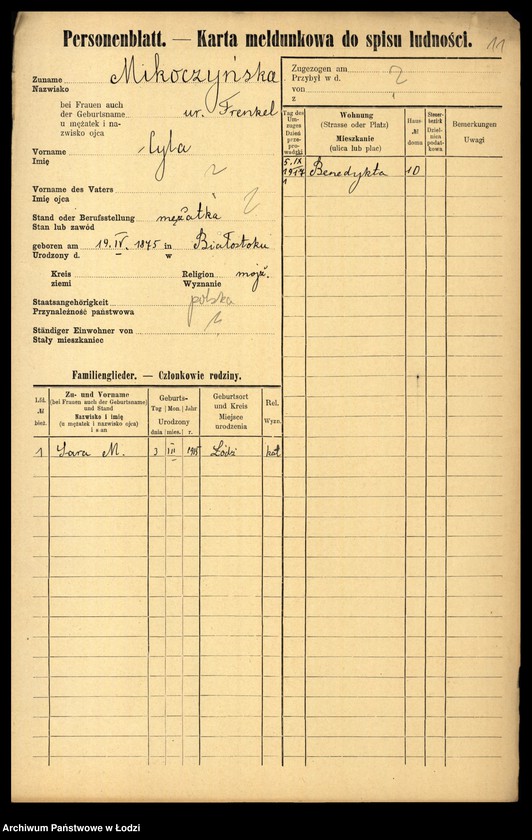 Personenblatt. — Karta meldunkowa do spisu ludności.
11
Zuname
Nazwisko
Mikoczyńska
bei Frauen auch
der Geburtsname
u mężatek i na-
zwisko ojca
ur. Frenkel
Vorname
Imię
Cyla
Vorname des Vaters
Imię ojca
Stand oder Berufsstellung
Stan lub zawód
mężatka
geboren am 19. IV. 1875 in Białostoku
Urodzony d. w
Kreis
ziemi
Religion mojż.
Wyznanie
Staatsangehörigkeit polska
Przynależność państwowa
Ständiger Einwohner von
Stały mieszkaniec
Zugezogen am
Przybył w d.
von
z
Tag des
Um-
zuges
Dzień
prze-
prowadzki
Wohnung
(Strasse oder Platz)
Mieszkanie
(ulica lub plac)
Haus-
№
domu
Steuer-
bezirk
Dziel-
nica
podat-
kowa
Bemerkungen
Uwagi
5. IX
1917
Benedykta 10
Familienglieder. — Członkowie rodziny.
Lfd.
№
bież.
Zu- und Vorname
(bei Frauen auch der Geburtsname)
und Stand
Nazwisko i imię
(u mężatek i nazwisko ojca)
i stan
Geburts-
Tag Mon. Jahr
Urodzony
dnia mies. r.
Geburtsort
und Kreis
Miejsce
urodzenia
Rel.
Wyzn.
1 Sara M. 3 III 1905 Łódź
Archiwum Państwowe w Łodzi